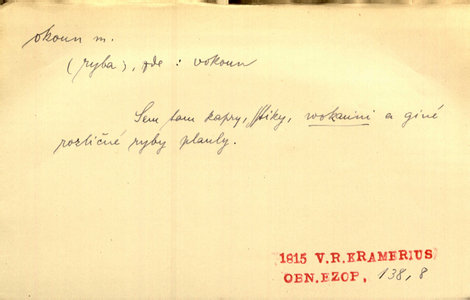 okoun m.
(ryba), zde: vokoun
Sem tam kapry, štiky, wokauni a giné
rozličné ryby plauly.
1815 V.R.KRAMERIUS
OBN.EZOP, 138,8